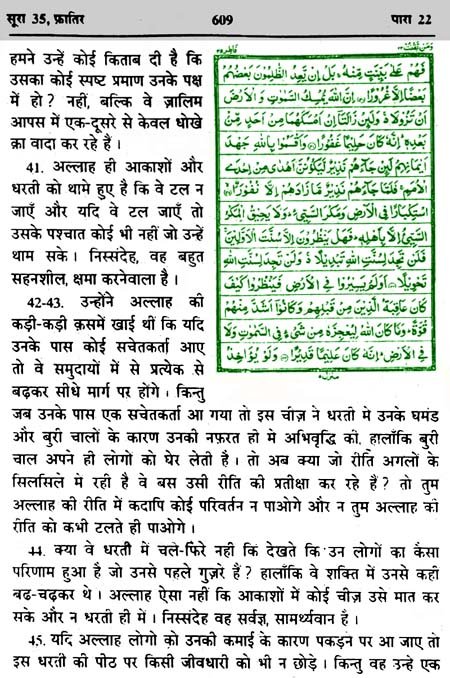 सूरा 35, फ़ातिर 609 पारा 22
हमने उन्हें कोई किताब दी है कि
उसका कोई स्पष्ट प्रमाण उनके पक्ष
में हो? नहीं, बल्कि वे ज़ालिम
आपस में एक-दूसरे से केवल धोखे
का वादा कर रहे हैं।
41. अल्लाह ही आकाशों और
धरती को थामे हुए है कि वे टल न
जाएँ और यदि वे टल जाएँ तो
उसके पश्चात कोई भी नहीं जो उन्हें
थाम सके। निस्संदेह, वह बहुत
सहनशील, क्षमा करनेवाला है।
42-43. उन्होंने अल्लाह की
कड़ी-कड़ी क़समें खाई थीं कि यदि
उनके पास कोई सचेतकर्ता आए
तो वे समुदायों में से प्रत्येक से
बढ़कर सीधे मार्ग पर होंगे। किन्तु
जब उनके पास एक सचेतकर्ता आ गया तो इस चीज़ ने धरती मे उनके घमंड
और बुरी चालों के कारण उनकी नफ़रत ही मे अभिवृद्धि की, हालाँकि बुरी
चाल अपने ही लोगों को घेर लेती है। तो अब क्या जो रीति अगलों के
सिलसिले मे रही है वे बस उसी रीति की प्रतीक्षा कर रहे हैं? तो तुम
अल्लाह की रीति में कदापि कोई परिवर्तन न पाओगे और न तुम अल्लाह की
रीति को कभी टलते ही पाओगे।
44. क्या वे धरती में चले-फिरे नही कि देखते कि उन लोगों का कैसा
परिणाम हुआ है जो उनसे पहले गुज़रे हैं? हालाँकि वे शक्ति में उनसे कही
बढ-चढ़कर थे। अल्लाह ऐसा नही कि आकाशों में कोई चीज़ उसे मात कर
सके और न धरती ही में। निस्संदेह वह सर्वज्ञ, सामर्थ्यवान है।
45. यदि अल्लाह लोगों को उनकी कमाई के कारण पकड़न पर आ जाए तो
इस धरती की पीठ पर किसी जीवधारी को भी न छोड़े। किन्तु वह उन्हे एक
فاطر ٣٥ ومن يقنت ٢٢
فَهُمْ عَلٰى بَيِّنَتٍ مِّنْهُ ۚ بَلْ اِنْ يَّعِدُ الظّٰلِمُوْنَ بَعْضُهُمْ
بَعْضًا اِلَّا غُرُوْرًا ۞ اِنَّ اللّٰهَ يُمْسِكُ السَّمٰوٰتِ وَ الْاَرْضَ
اَنْ تَزُوْلَا ۚ وَ لَئِنْ زَالَتَاۤ اِنْ اَمْسَكَهُمَا مِنْ اَحَدٍ مِّنْۢ
بَعْدِهٖ ؕ اِنَّهٗ كَانَ حَلِيْمًا غَفُوْرًا ۞ وَ اَقْسَمُوْا بِاللّٰهِ جَهْدَ
اَيْمَانِهِمْ لَئِنْ جَآءَهُمْ نَذِيْرٌ لَّيَكُوْنُنَّ اَهْدٰى مِنْ اِحْدَى
الْاُمَمِ ۚ فَلَمَّا جَآءَهُمْ نَذِيْرٌ مَّا زَادَهُمْ اِلَّا نُفُوْرَا ۞
اسْتِكْبَارًا فِي الْاَرْضِ وَ مَكْرَ السَّيِّئِ ؕ وَ لَا يَحِيْقُ الْمَكْرُ
السَّيِّئُ اِلَّا بِاَهْلِهٖ ؕ فَهَلْ يَنْظُرُوْنَ اِلَّا سُنَّتَ الْاَوَّلِيْنَ ۚ
فَلَنْ تَجِدَ لِسُنَّتِ اللّٰهِ تَبْدِيْلًا ۚ۬ وَ لَنْ تَجِدَ لِسُنَّتِ اللّٰهِ
تَحْوِيْلًا ۞ اَوَ لَمْ يَسِيْرُوْا فِي الْاَرْضِ فَيَنْظُرُوْا كَيْفَ
كَانَ عَاقِبَةُ الَّذِيْنَ مِنْ قَبْلِهِمْ وَ كَانُوْۤا اَشَدَّ مِنْهُمْ
قُوَّةً ؕ وَ مَا كَانَ اللّٰهُ لِيُعْجِزَهٗ مِنْ شَيْءٍ فِي السَّمٰوٰتِ وَ لَا
فِي الْاَرْضِ ؕ اِنَّهٗ كَانَ عَلِيْمًا قَدِيْرًا ۞ وَ لَوْ يُؤَاخِذُ